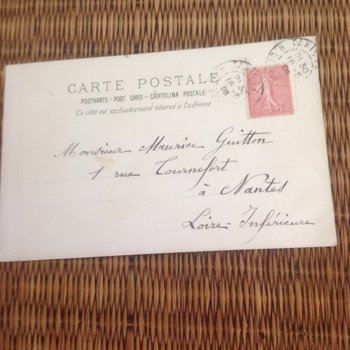 CARTE POSTALE
POSTKARTE - POST CARD - CARTOLINA POSTALE
Ce côté est exclusivement réservé à l'adresse.
Monsieur Maurice Guitton
1 rue Tournefort
à Nantes
Loire-Inférieure